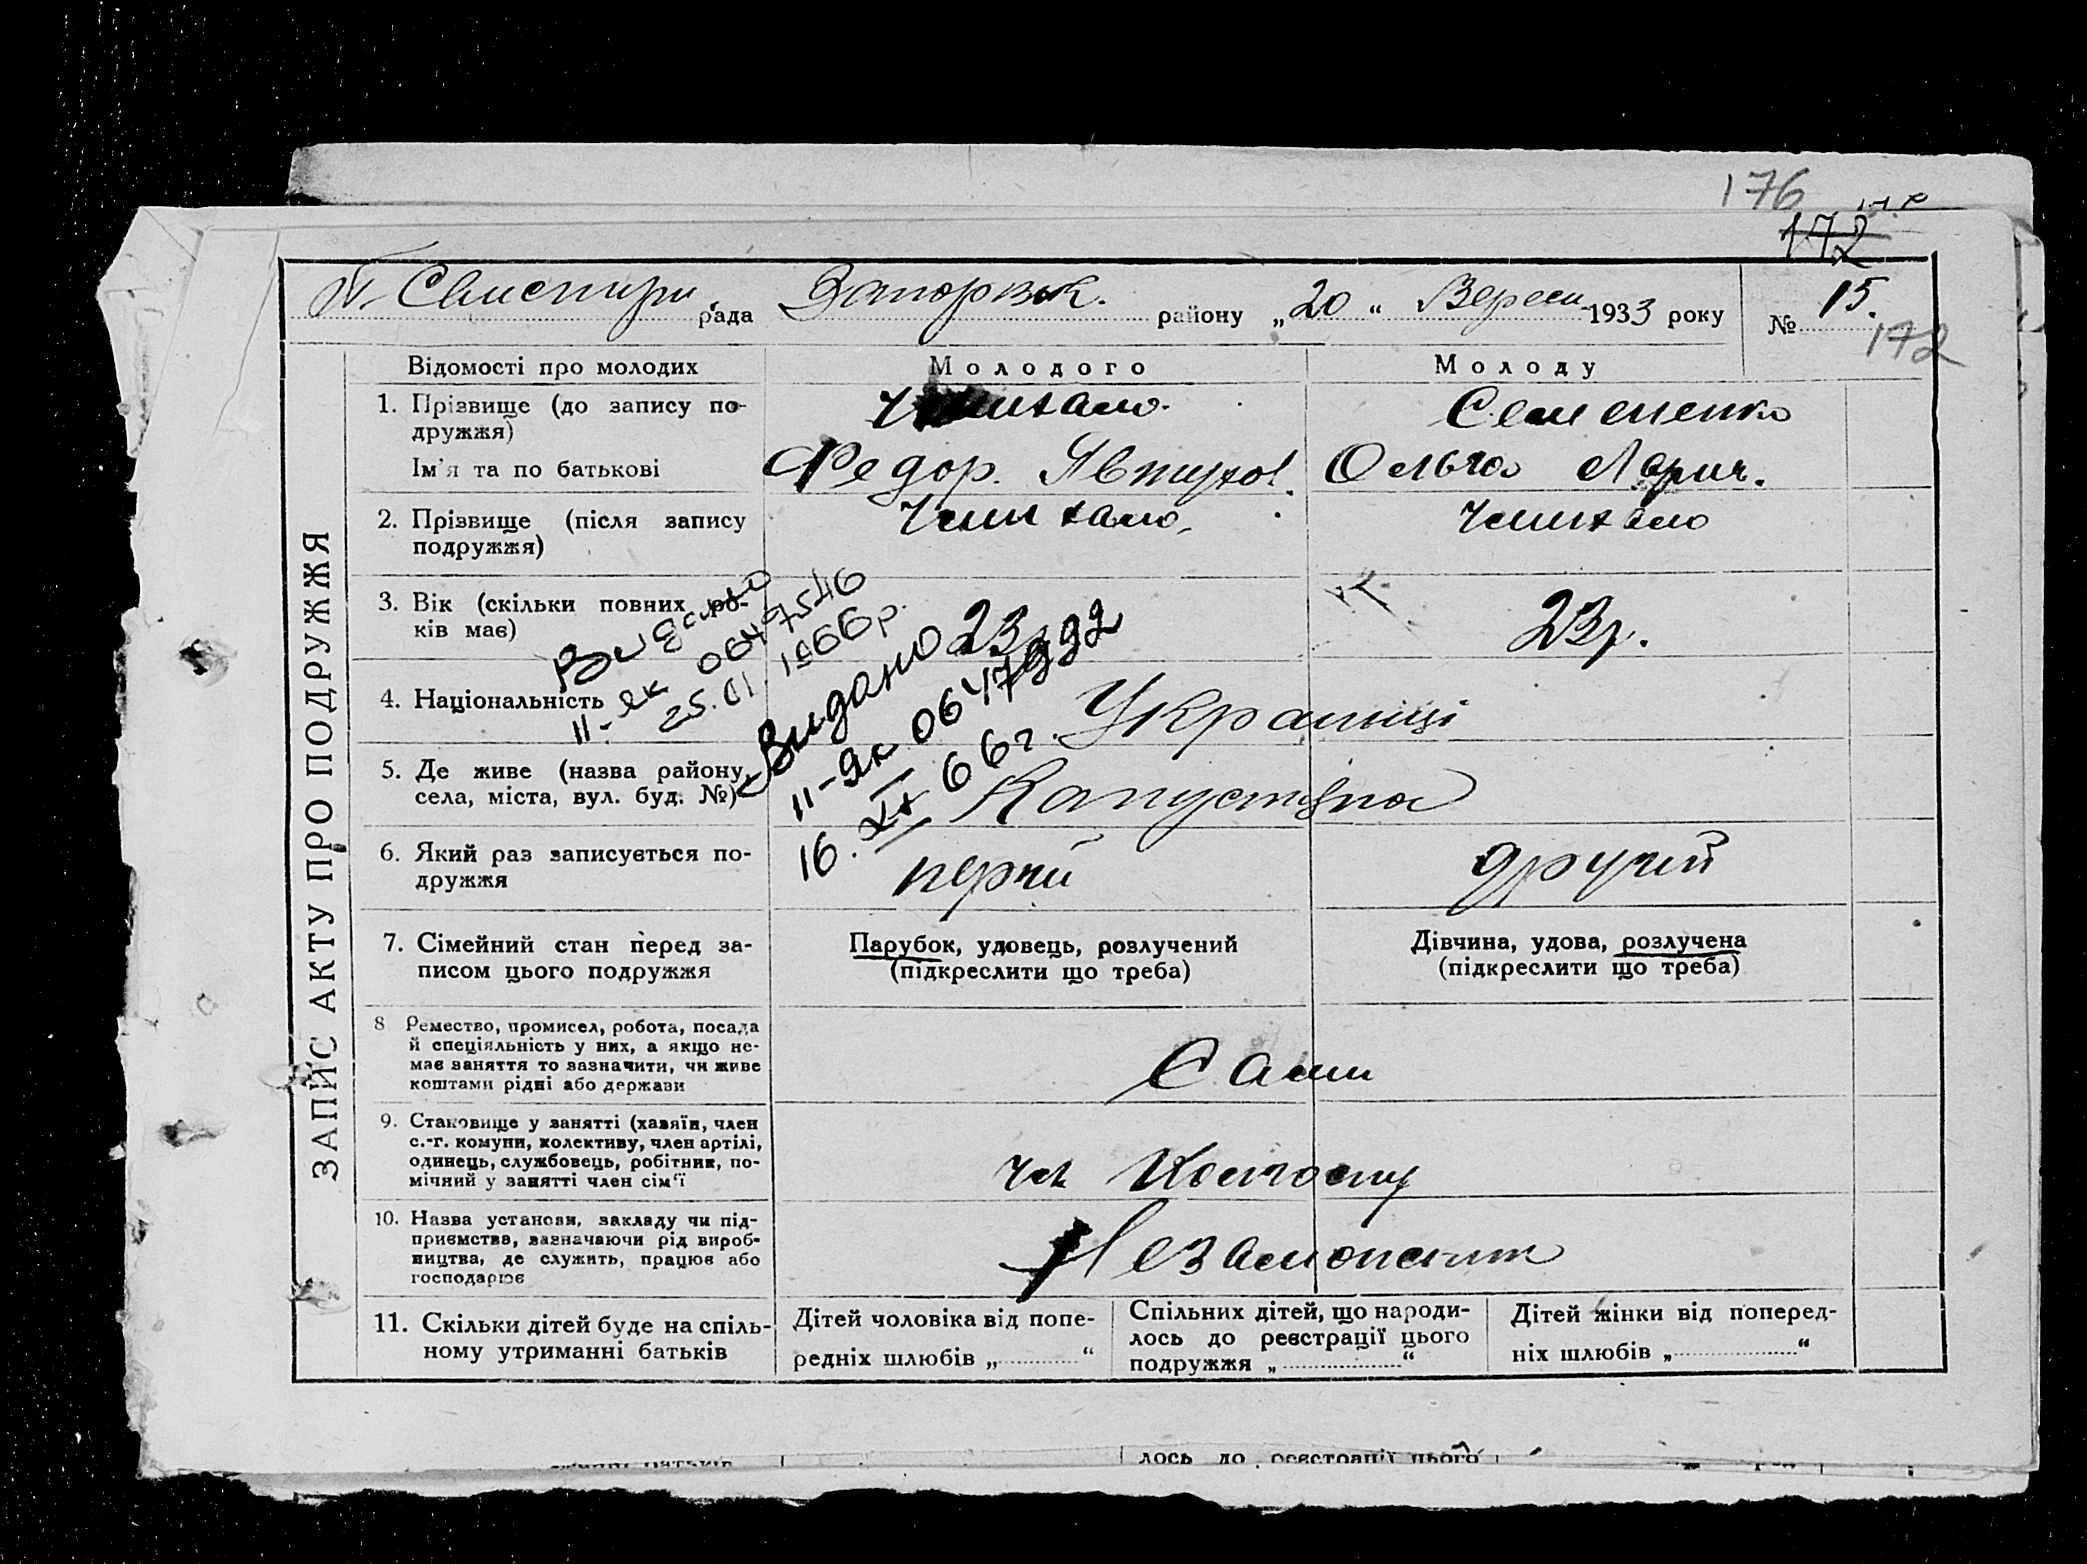 176
172
рада Запорізьк. району „20“ Вересн 1933 року № 15.
172
ЗАПИС АКТУ ПРО ПОДРУЖЖЯ
Відомості про молодих Молодого Молоду
1. Прізвище (до запису по- Семененко
дружжя)
Ім'я та по батькові Федор. Явтухов. Ольга Ларич.
2. Прізвище (після запису
подружжя)
3. Вік (скільки повних ро- 23р. 23р.
ків має)
Видано
II-ЯК 0647546
25.01.1966р.
Видано
II-ЯК 0647992
16.XI 66г.
4. Національність Украінці
5. Де живе (назва району, Капустяна
села, міста, вул. буд. №)
6. Який раз записується по- перший другий
дружжя
7. Сімейний стан перед за- Парубок, удовець, розлучений Дівчина, удова, розлучена
писом цього подружжя (підкреслити що треба) (підкреслити що треба)
8 Ремество, промисел, робота, посада
й спеціяльність у них, а якщо не-
має заняття то зазначити, чи живе Сами
коштами рідні або держави
9. Становище у занятті (хазяїн, член
с.-г. комуни, колективу, член артілі,
одинець, службовець, робітник, по- чл Колгоспу
мічний у занятті член сім'ї
10. Назва установи, закладу чи під-
приємства, зазначаючи рід вироб-
ництва, де служить, працює або Незаможник
господарює
11. Скільки дітей буде на спіль- Дітей чоловіка від попе- Спільних дітей, що народи- Дітей жінки від поперед-
ному утриманні батьків редніх шлюбів „ “ лось до реєстрації цього ніх шлюбів „ “
подружжя „ “
лось до реєстрації цього